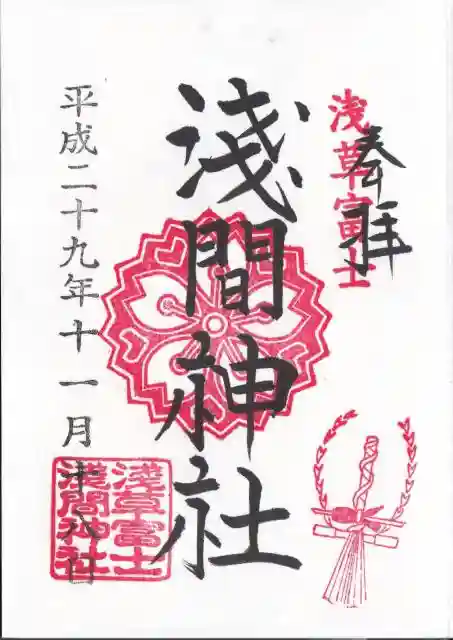 奉拝
浅草富士
淺間神社
平成二十九年十一月十八日
淺草富士
淺間神社